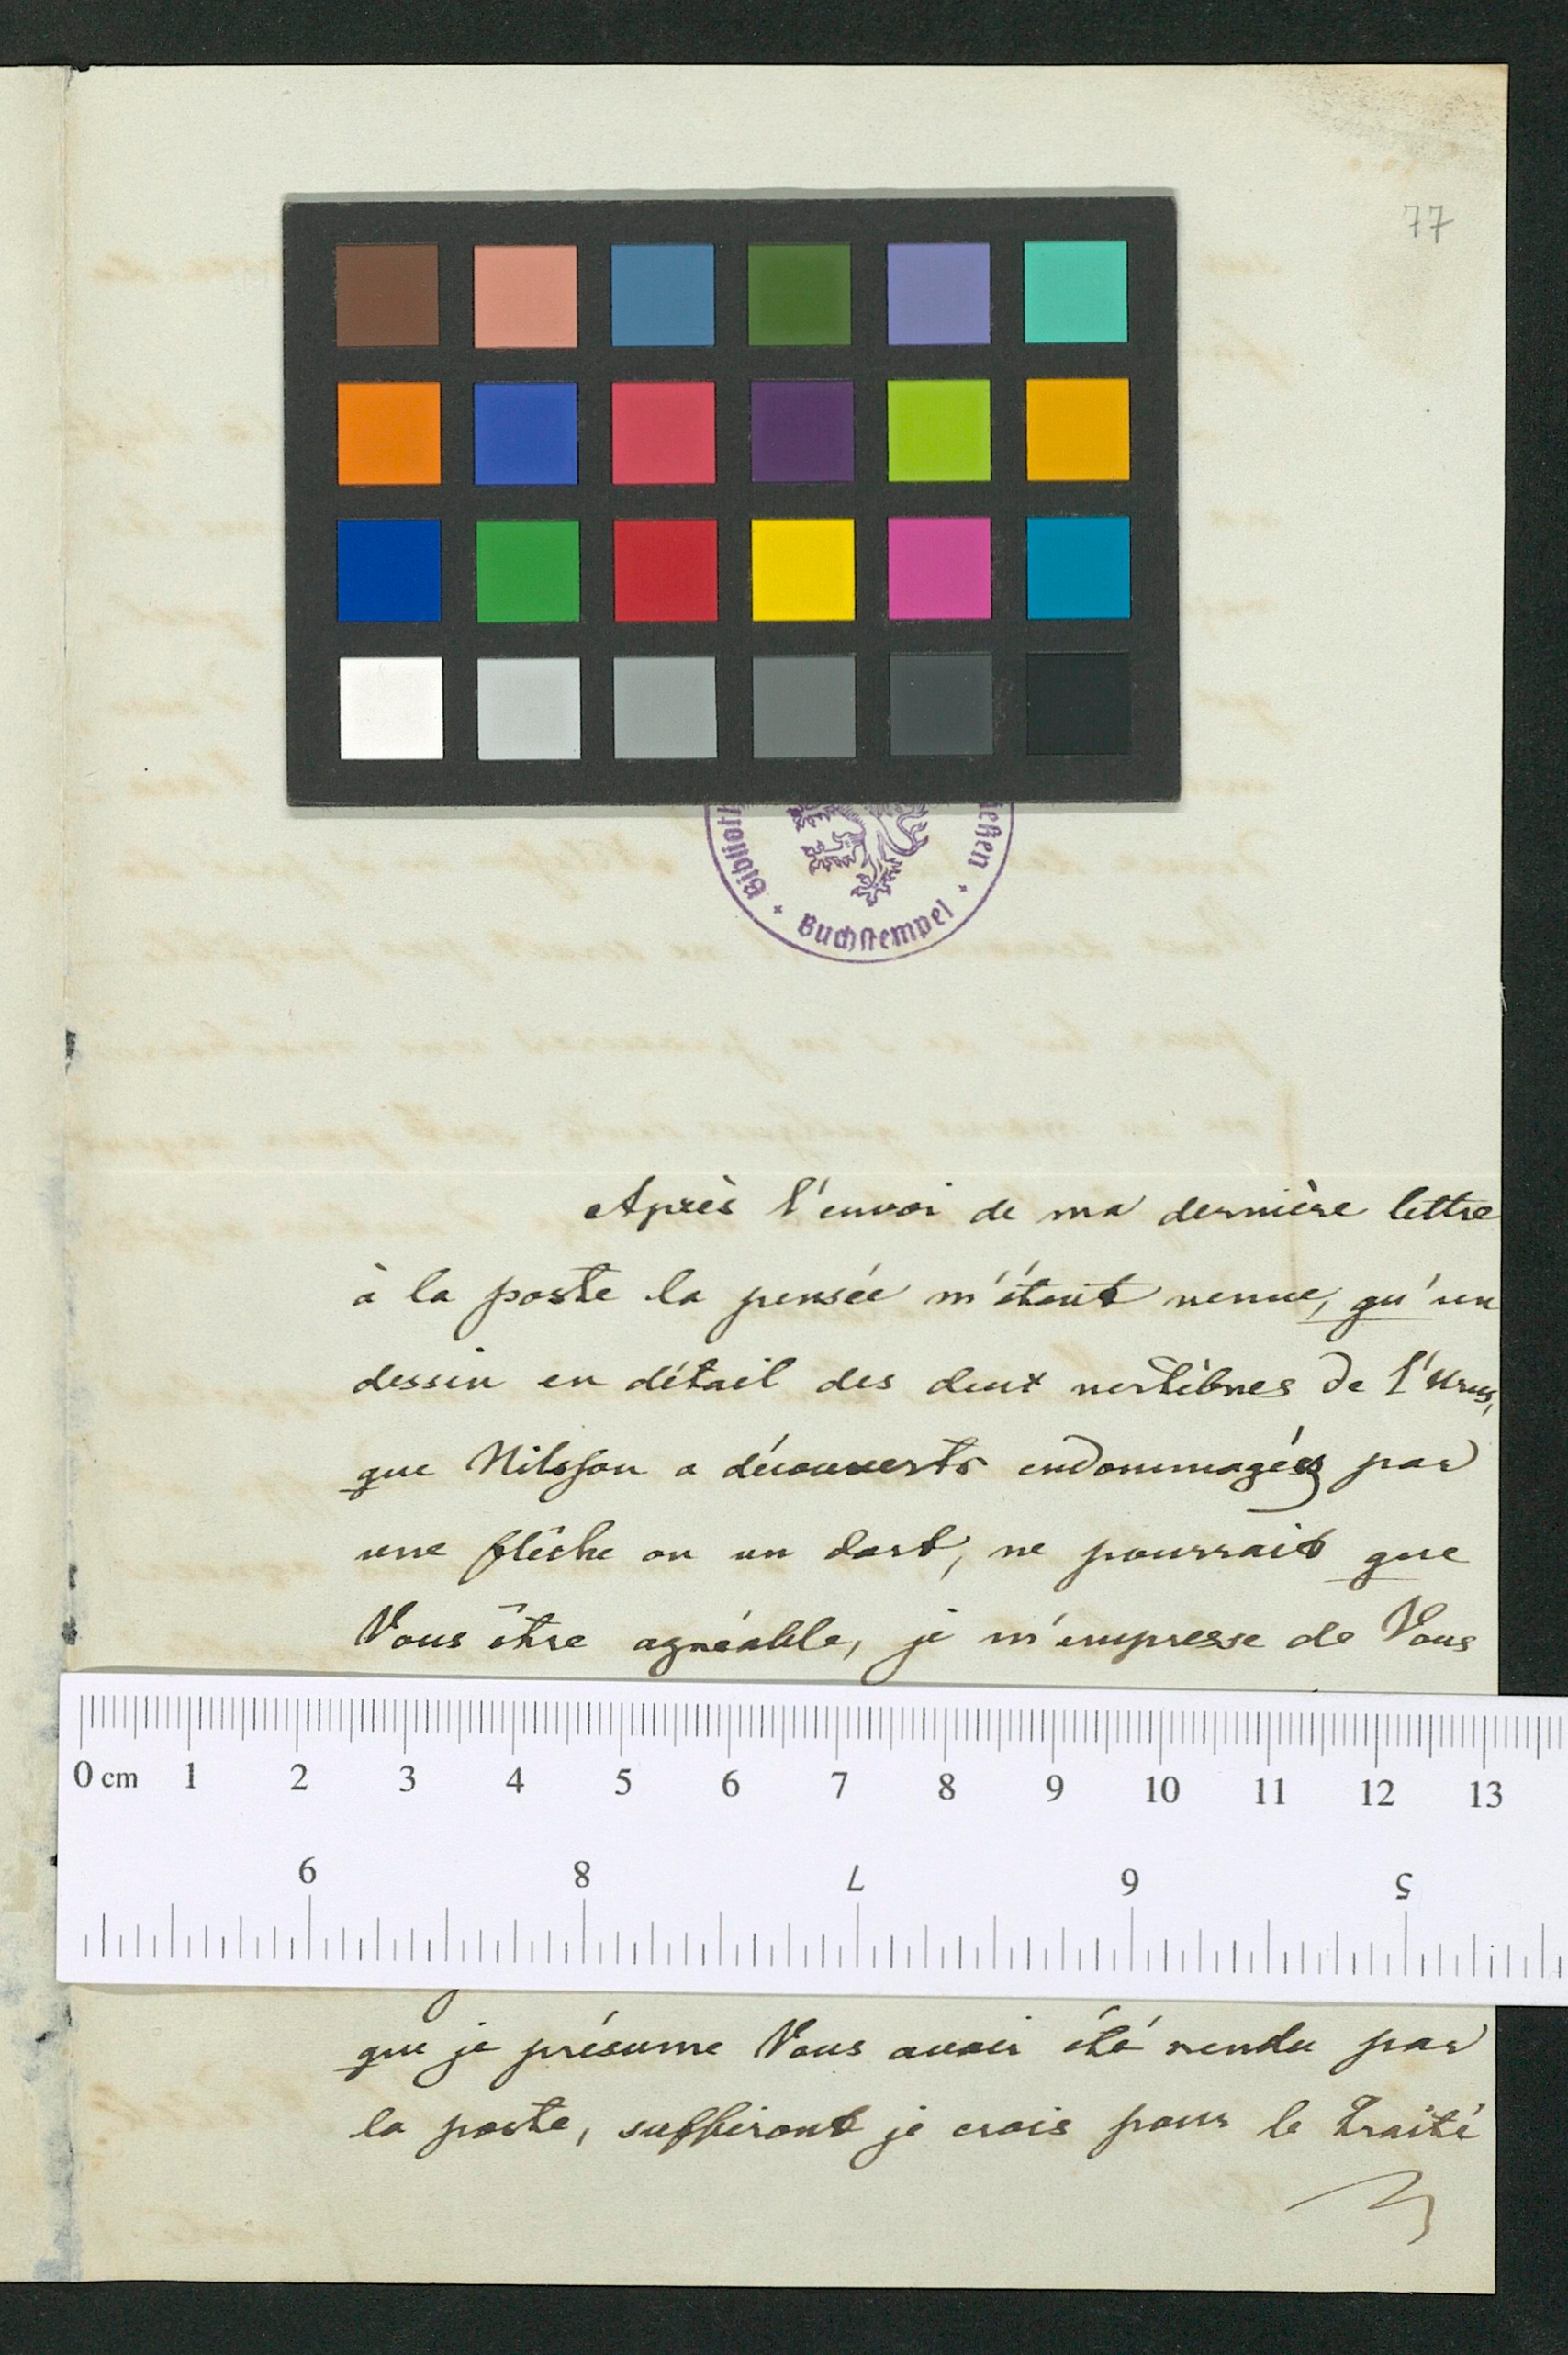 77
Buchstempel
Après l'envoi de ma dernière lettre
à la poste la pensée m'étant venue, qu'un
dessin en détail des deux vertèbres de l'Urus,
que Nilsson a découverts endommagés par
une flêche ou un dart, ne pourrait que
Vous être agréable, je m'empresse de Vous
0 cm 1 2 3 4 5 6 7 8 9 10 11 12 13
9 8 7 6 5
que je présume Vous avoir été rendu par
la poste, suffiront je crois pour le traité